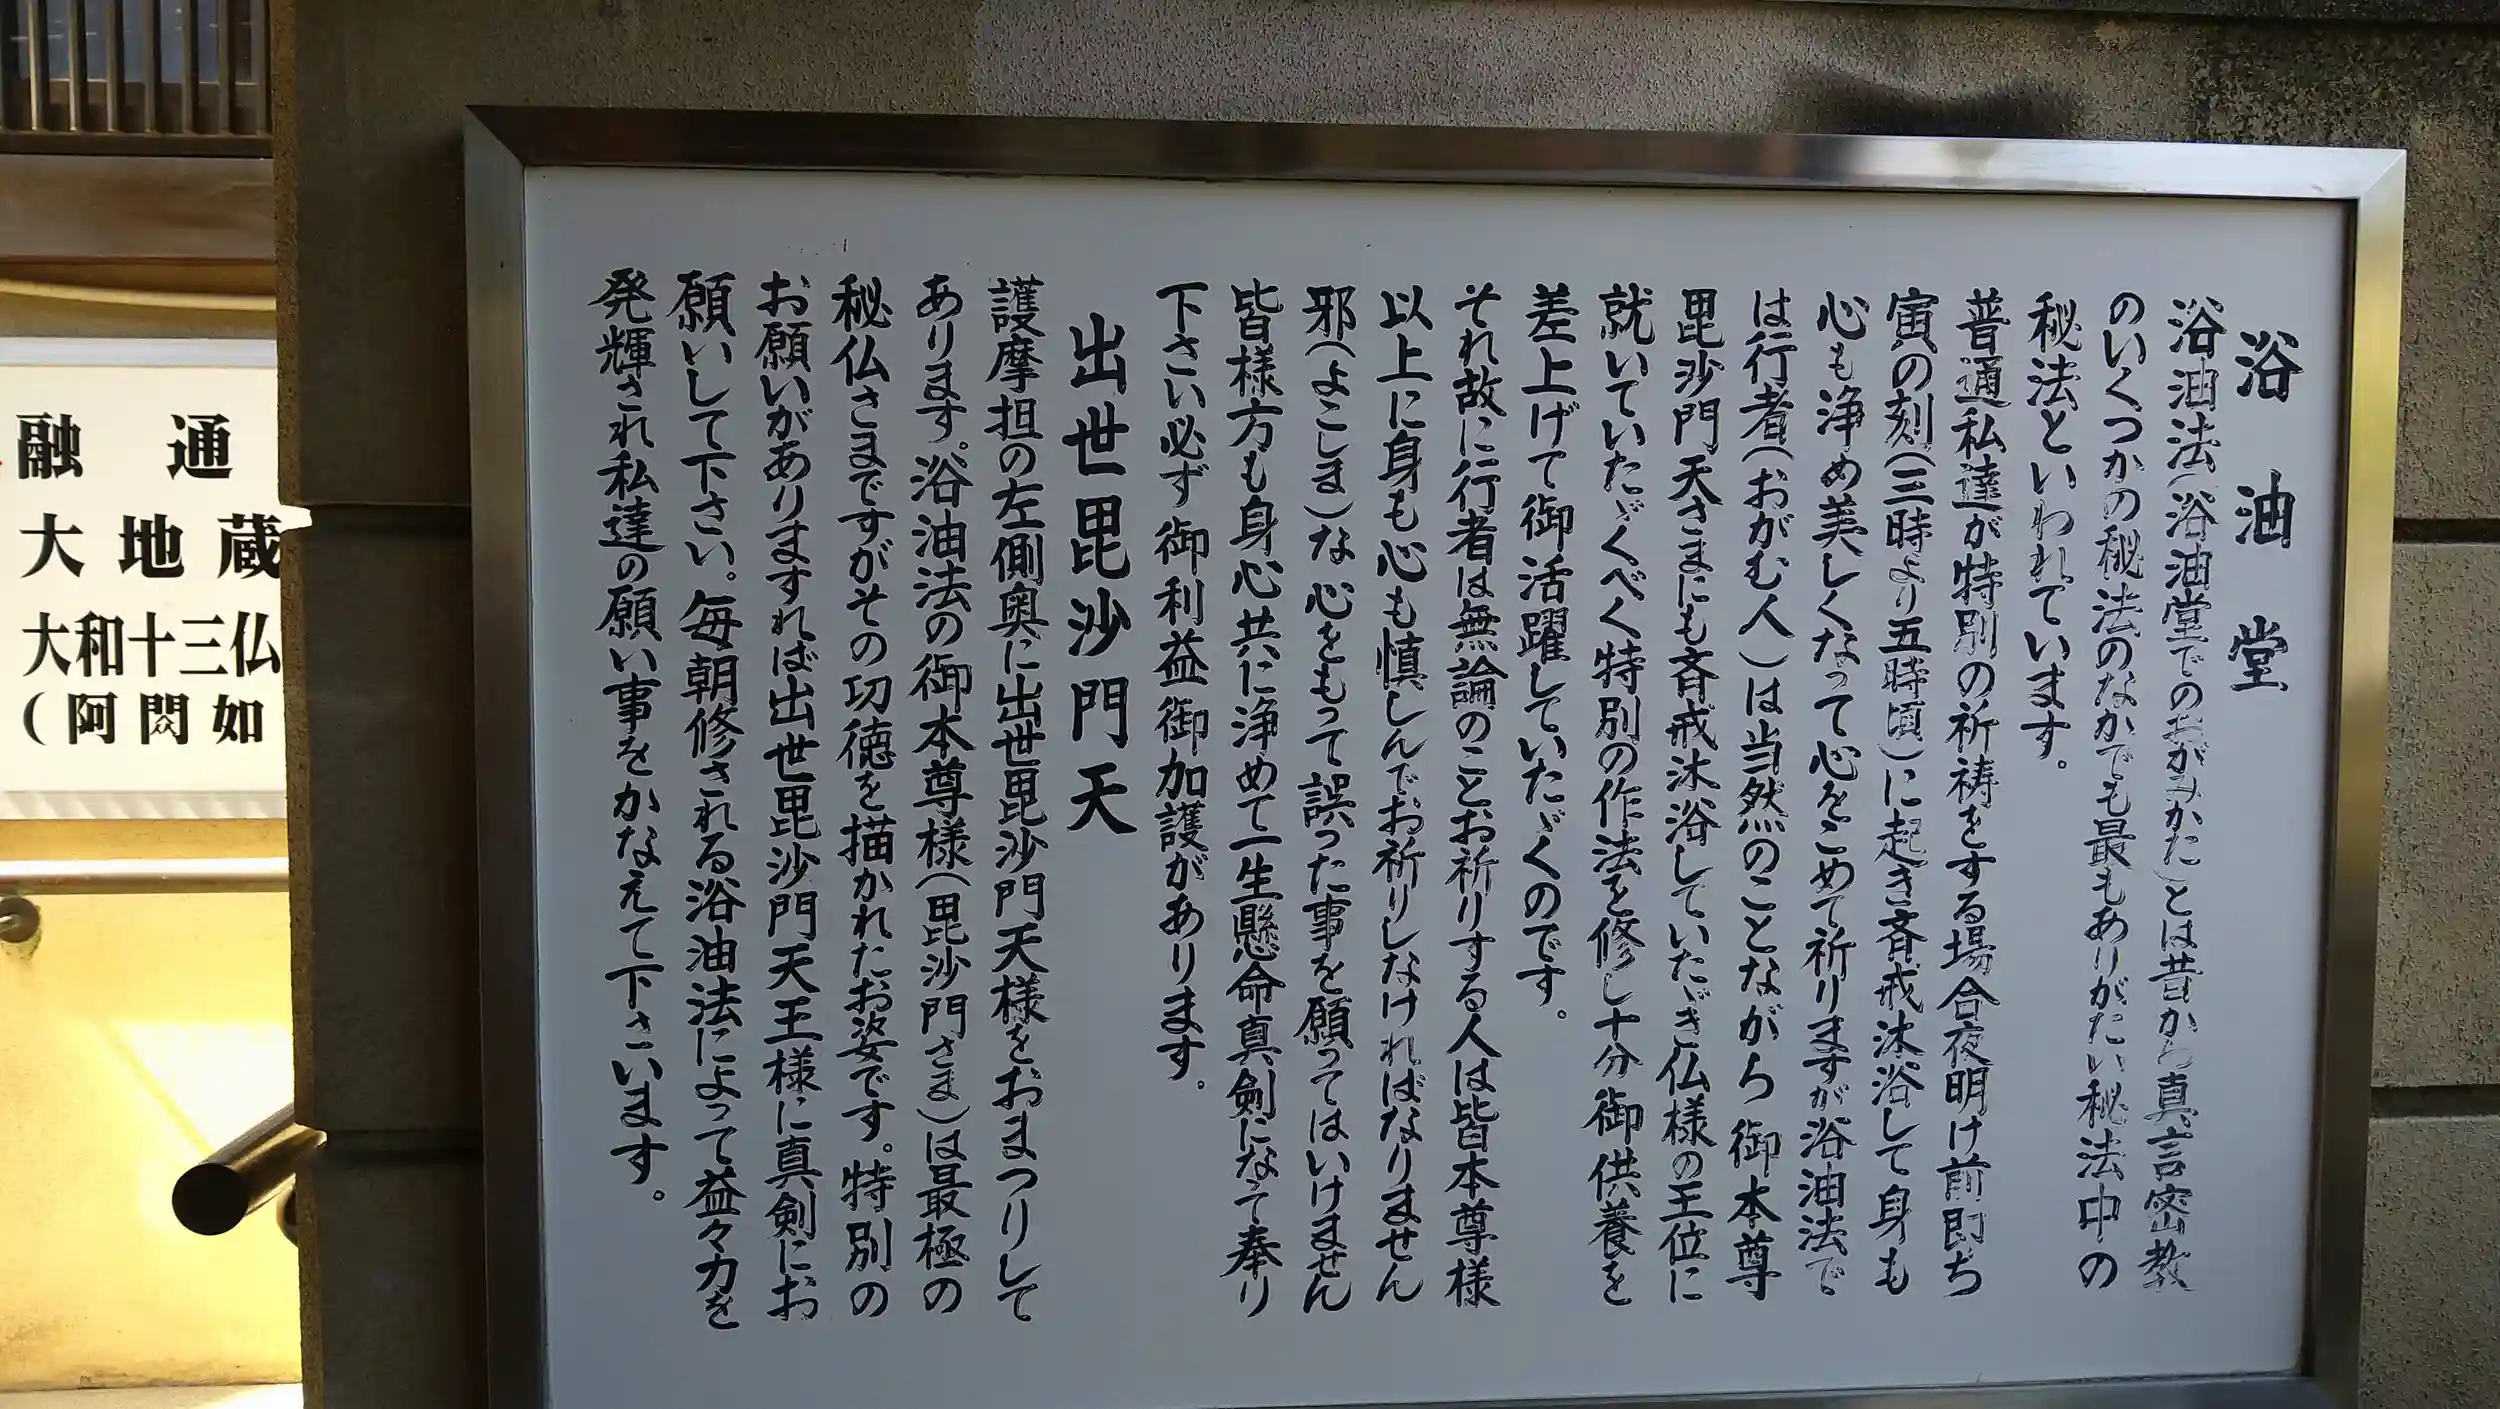 浴油堂
浴油法(浴油堂でのおがみかた)とは昔から真言密教
のいくつかの秘法のなかでも最もありがたい秘法中の
秘法といわれています。
普通私達が特別の祈祷をする場合夜明け前即ち
寅の刻(三時より五時頃)に起き斉戒沐浴して身も
心も浄め美しくなって心をこめて祈りますが浴油法で
は行者(おがむ人)は当然のことながら御本尊
毘沙門天さまにも斉戒沐浴していたゞき仏様の王位に
就いていたゞくべく特別の作法を修し十分御供養を
差上げて御活躍していたゞくのです。
それ故に行者は無論のことお祈りする人は皆本尊様
以上に身も心も慎しんでお祈りしなければなりません
邪(よこしま)な心をもって誤った事を願ってはいけません
皆様方も身心共に浄めて一生懸命真剣になって奉り
下さい必ず御利益御加護があります。
出世毘沙門天
護摩担の左側奥に出世毘沙門天様をおまつりして
あります。浴油法の御本尊様(毘沙門さま)は最極の
秘仏さまですがその功徳を描かれたお姿です。特別の
お願いがありますれば出世毘沙門天王様に真剣にお
願いして下さい。毎朝修される浴油法によって益々力を
発輝され私達の願い事をかなえて下さいます。
融通
大地蔵
大和十三仏
(阿閦如